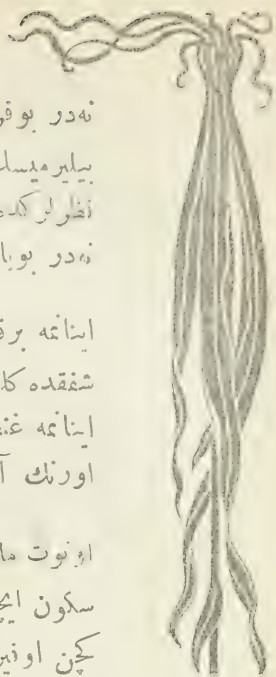 نەدر بوفر
بیلیر میسك
نظرلرکده
نەدر بوبا
اینانمه برق
شفقده کا
اینانمه غن
اورنك آ
اونوت ما
سکون ایچ
کچن اونیر